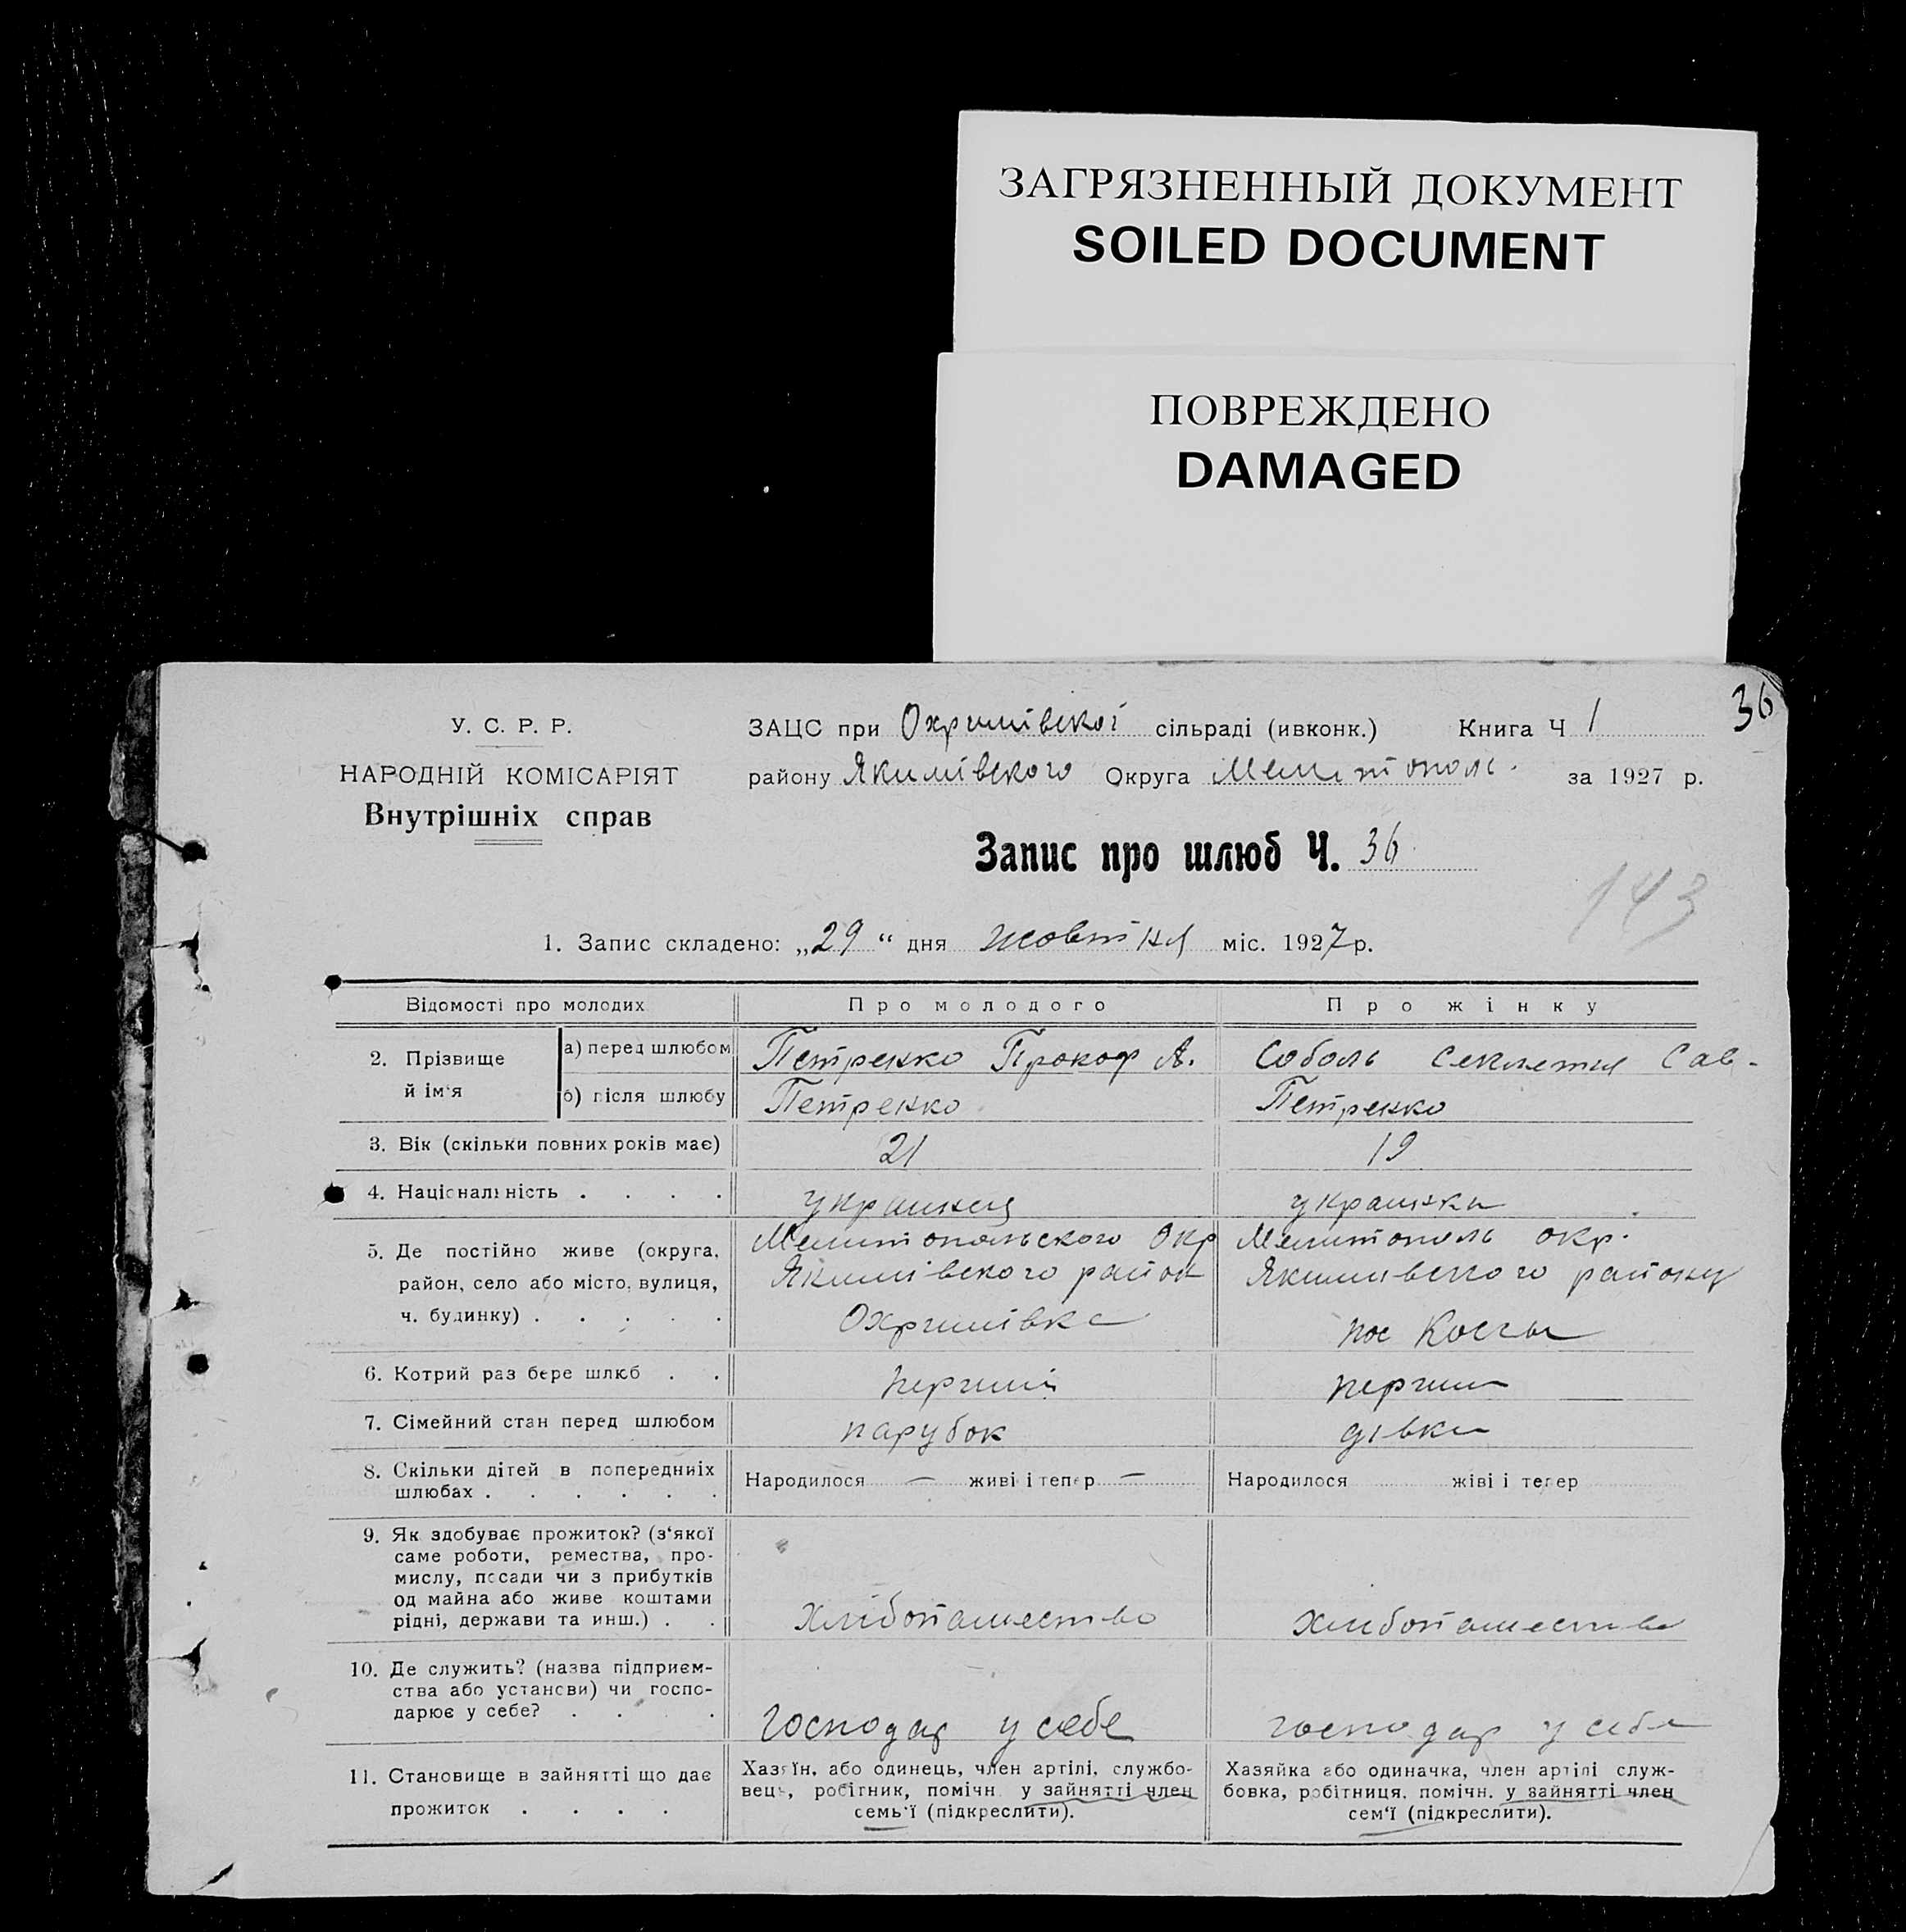 ЗАГРЯЗНЕННЫЙ ДОКУМЕНТ
SOILED DOCUMENT
ПОВРЕЖДЕНО
DAMAGED
36
У. С. Р. Р.
НАРОДНІЙ КОМІСАРІЯТ
Внутрішніх справ
ЗАЦС при Охримівскої сільраді (ивконк.) Книга Ч 1
району Якимівского Округа Мелитополь. за 1927 р.
Запис про шлюб Ч. 36
143
1. Запис складено: „29“ дня жовтня міс. 1927 р.
Відомості про молодих Про молодого Про жінку
2. Прізвище й ім‘я
а) перед шлюбом Петренко Прокоф А. Соболь Секлетия Сав-
б) після шлюбу Петренко Петренко
3. Вік (скільки повних років має) 21 19
4. Національність . . . . украинец украинка
5. Де постійно живе (округа, Мелитопольского Окр Мелитополь окр.
район, село або місто, вулиця, Якимівского район Якимивского району
ч. будинку) . . . . . Охримівка пос
6. Котрий раз бере шлюб . . перший перший
7. Сімейний стан перед шлюбом парубок дівка
8. Скільки дітей в попередниіх Народилося — живі і тепер — Народилося жіві і тепер
шлюбах . . . . . .
9. Як здобуває прожиток? (з‘якої
саме роботи, ремества, про-
мислу, посади чи з прибутків
од майна або живе коштами
рідні, держави та инш.) . . хлібопашество хлибопашество
10. Де служить? (назва підприєм-
ства або установи) чи госпо-
дарює у себе? . . . . господар у себе господар у себе
11. Становище в зайнятті що дає
прожиток . . . .
Хазяїн, або одинець, член артілі, службо-
вець, робітник, помічн. у зайнятті член
семь‘ї (підкреслити).
Хазяйка або одиначка, член артілі служ-
бовка, робітниця, помічн. у зайнятті член
сем‘ї (підкреслити).